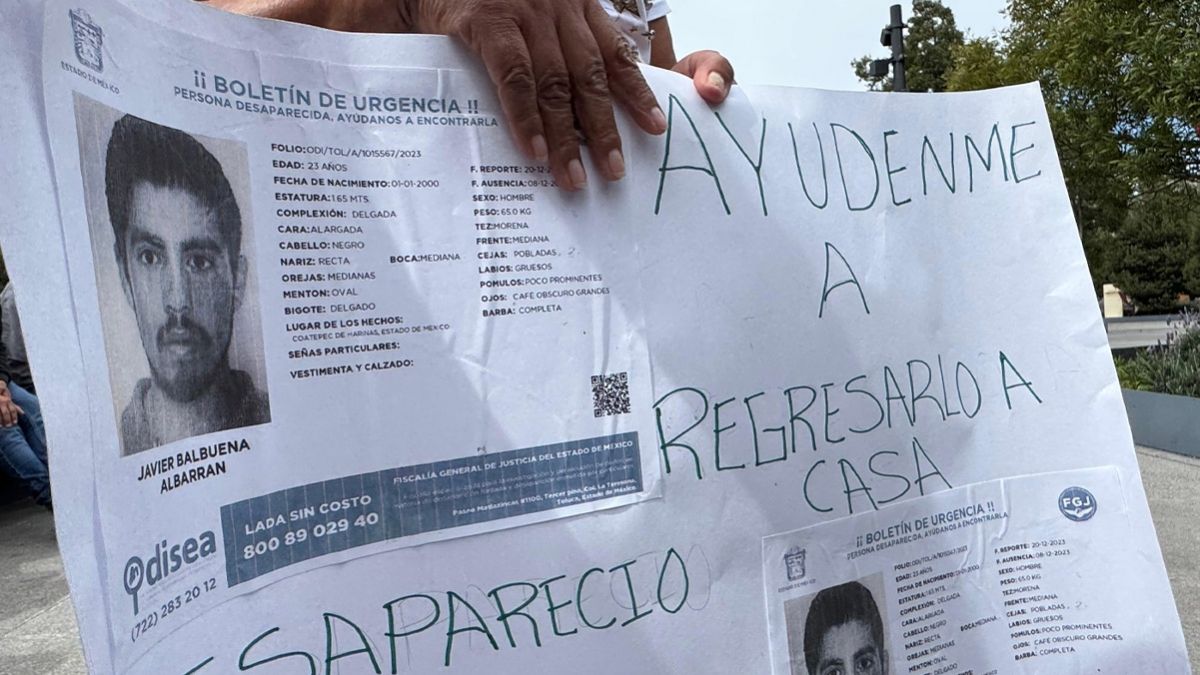 ESTADO DE MÉXICO
¡¡ BOLETÍN DE URGENCIA !!
PERSONA DESAPARECIDA, AYÚDANOS A ENCONTRARLA
FOLIO: ODI/TOL/A/1015567/2023
EDAD: 23 AÑOS
FECHA DE NACIMIENTO: 01-01-2000
ESTATURA: 1.65 MTS
COMPLEXIÓN: DELGADA
CARA: ALARGADA
CABELLO: NEGRO
NARIZ: RECTA BOCA: MEDIANA
OREJAS: MEDIANAS
MENTON: OVAL
BIGOTE: DELGADO
LUGAR DE LOS HECHOS:
COATEPEC DE HARINAS, ESTADO DE MEXICO
SEÑAS PARTICULARES:
VESTIMENTA Y CALZADO:
F. REPORTE: 20-12-2
F. AUSENCIA: 08-12
SEXO: HOMBRE
PESO: 65.0 KG
TEZ: MORENA
FRENTE: MEDIANA
CEJAS: POBLADAS
LABIOS: GRUESOS
POMULOS: POCO PROMINENTES
OJOS: CAFE OBSCURO GRANDES
BARBA: COMPLETA
JAVIER BALBUENA
ALBARRAN
Odisea
(722) 283 20 12
LADA SIN COSTO
800 89 029 40
FISCALÍA GENERAL DE JUSTICIA DEL ESTADO DE MÉXICO
Paseo Matlazincas #1100, Tercer piso, Col. La Teresona,
Toluca, Estado de México.
AYUDENME
A
REGRESARLO A
CASA
ESAPARECIO
ESTADO DE MÉXICO
¡¡ BOLETÍN DE URGENCIA !!
PERSONA DESAPARECIDA, AYÚDANOS A ENCONTRARLA
FGJ
FOLIO: ODI/TOL/A/1015567/2023
EDAD: 23 AÑOS
FECHA DE NACIMIENTO: 01-01-2000
ESTATURA: 1.65 MTS
COMPLEXIÓN: DELGADA
CARA: ALARGADA
CABELLO: NEGRO
NARIZ: RECTA BOCA: MEDIANA
OREJAS: MEDIANAS
MENTON: OVAL
BIGOTE: DELGADO
F. REPORTE: 20-12-2023
F. AUSENCIA: 08-12-2023
SEXO: HOMBRE
PESO: 65.0 KG
TEZ: MORENA
FRENTE: MEDIANA
CEJAS: POBLADAS
LABIOS: GRUESOS
POMULOS: POCO PROMINENTES
OJOS: CAFE OBSCURO GRANDES
BARBA: COMPLETA